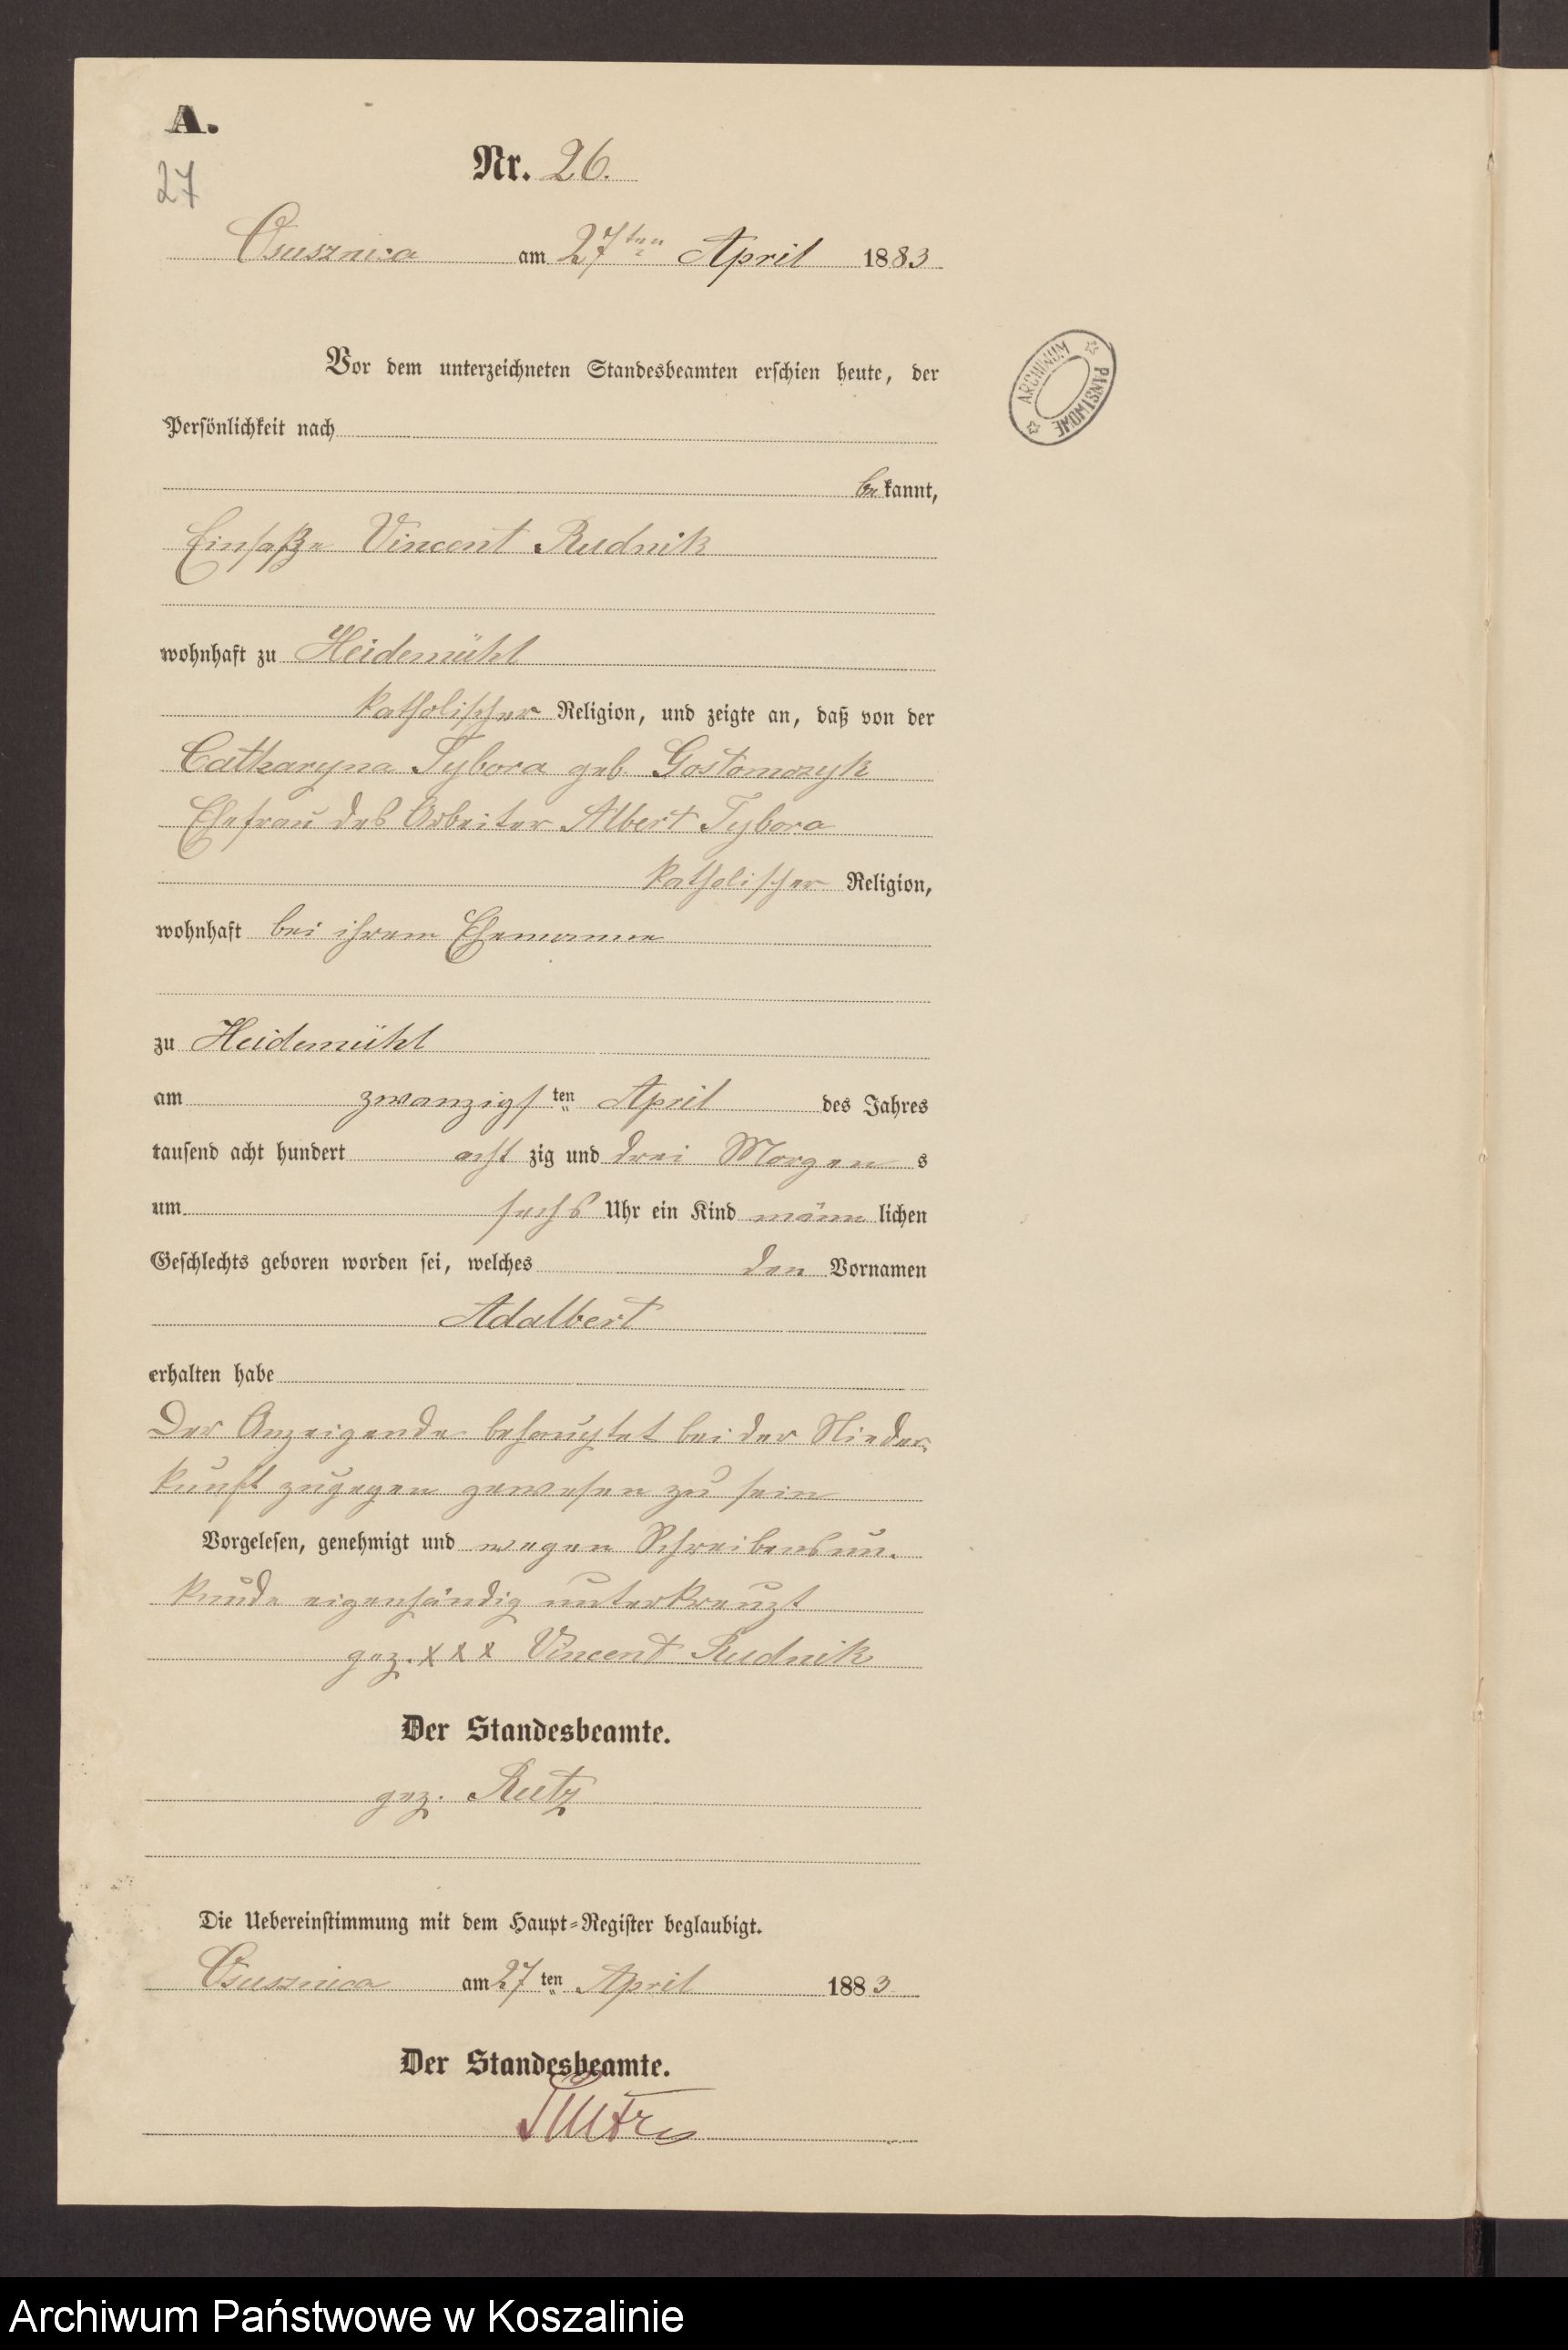 A.
27
Nr. 26.
Osusznica am 27ten April 1883
Vor dem unterzeichneten Standesbeamten erschien heute, der
Persönlichkeit nach
bekannt,
Einsaße Vincent Rudnik
wohnhaft zu Heidemühl
katholischer Religion, und zeigte an, daß von der
Catharyna Tybora geb. Gostomczyk
Ehefrau des Arbeiter Albert Tybora
katholischer Religion,
wohnhaft bei ihrem Ehemanne
zu Heidemühl
am zwanzigsten April des Jahres
tausend acht hundert achtzig und drei Morgens
um sechs Uhr ein Kind männlichen
Geschlechts geboren worden sei, welches den Vornamen
Adalbert
erhalten habe
Der Anzeigende behauptet bei der Nieder-
kunft zugegen gewesen zu sein
Vorgelesen, genehmigt und wegen Schreibensun-
kunde eigenhändig unterkreuzt
gez. x x x Vincent Rudnik
Der Standesbeamte.
gez. Rutz
Die Uebereinstimmung mit dem Haupt-Register beglaubigt.
Osusznica am 27ten April 1883
Der Standesbeamte.
Rutz
ARCHIWUM PAŃSTWOWE
Archiwum Państwowe w Koszalinie